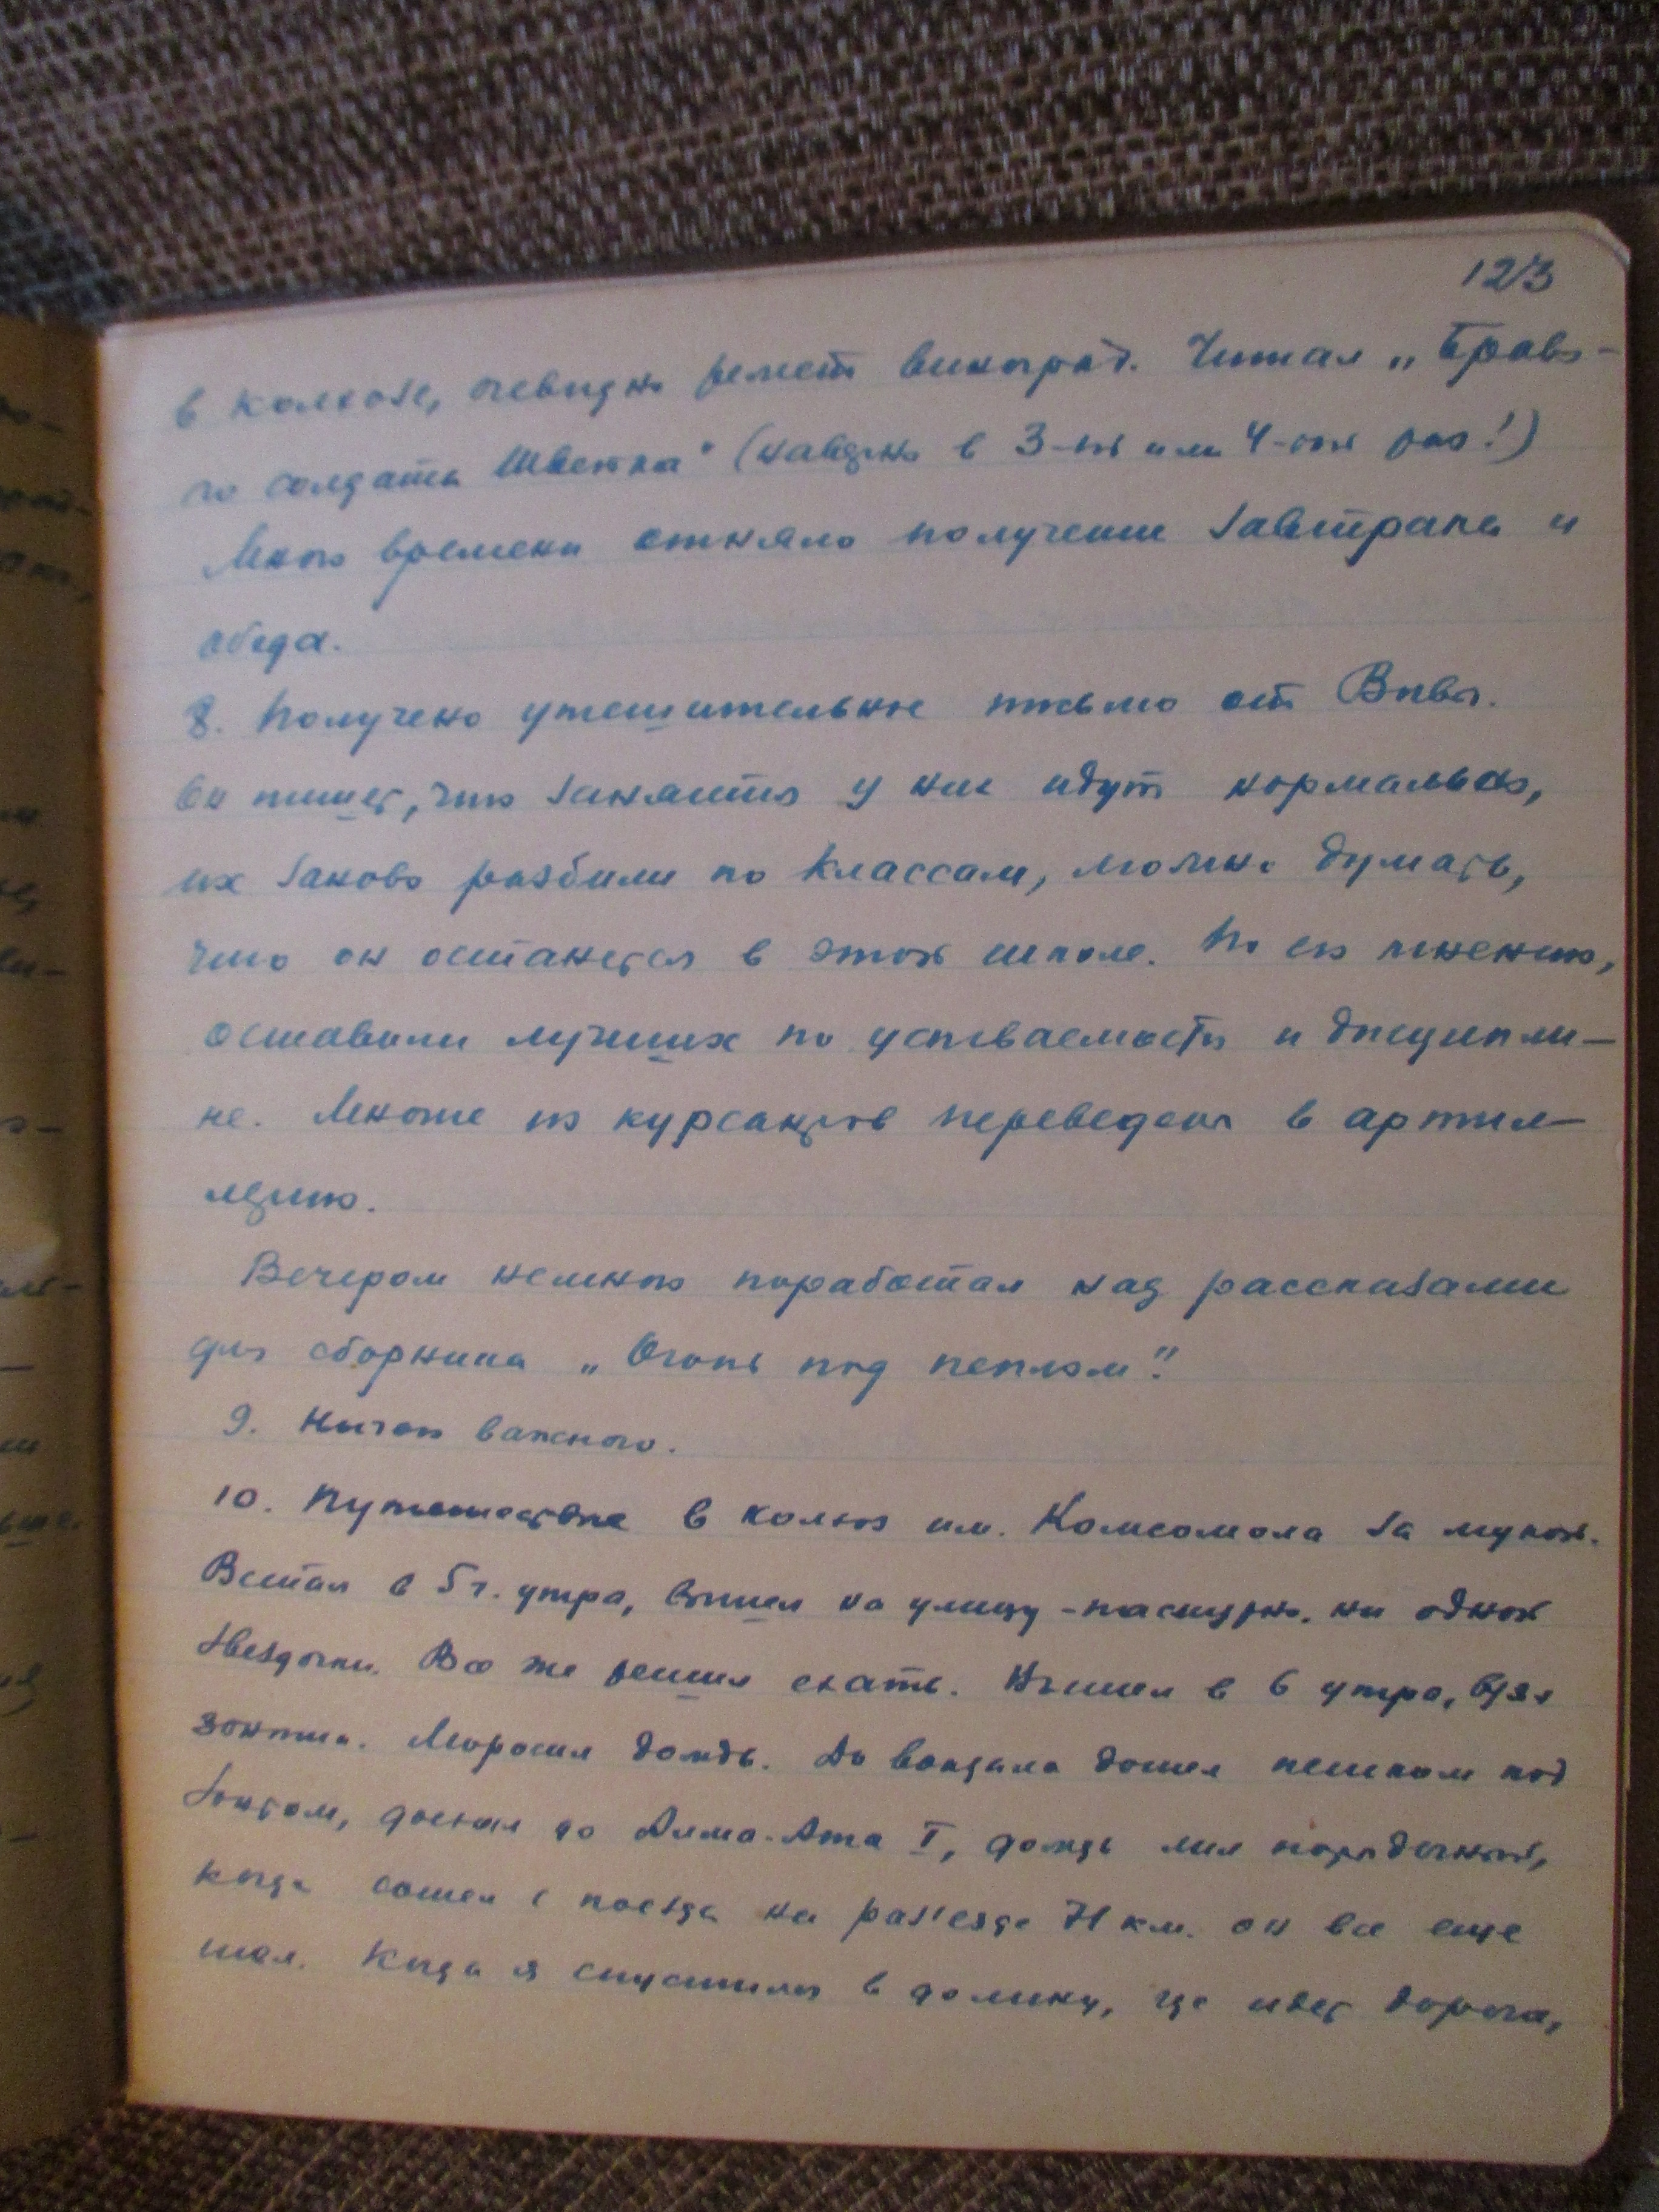 123
в колхозе, очевидно режет виноград. Читал „Браво-
го солдата Швейка" (наверно в 3-ий или 4-ый раз!)
Много времени отняло получение завтрака и
обеда.
8. Получено утешительное письмо от Вивы.
Он пишет, что занятия у них идут нормально,
их заново разбили по классам, можно думать,
что он останется в этой школе. По его мнению,
оставили лучших по успеваемости и дисципли-
не. Многие из курсантов переведены в артил-
лерию.
Вечером немного поработал над рассказами
для сборника „Огонь под пеплом".
9. Ничего важного.
10. Путешествие в колхоз им. Комсомола за мукой.
Встал в 5 ч. утра, вышел на улицу - пасмурно, ни одной
звездочки. Все же решил ехать. Вышел в 6 утра, взял
зонтик. Моросил дождь. До вокзала дошел пешком под
зонтом, доехал до Алма-Ата I, дождь лил порядочный,
когда сошел с поезда на раз'езде 71 км. он все еще
шел. Когда я спустился в долину, где идет дорога,